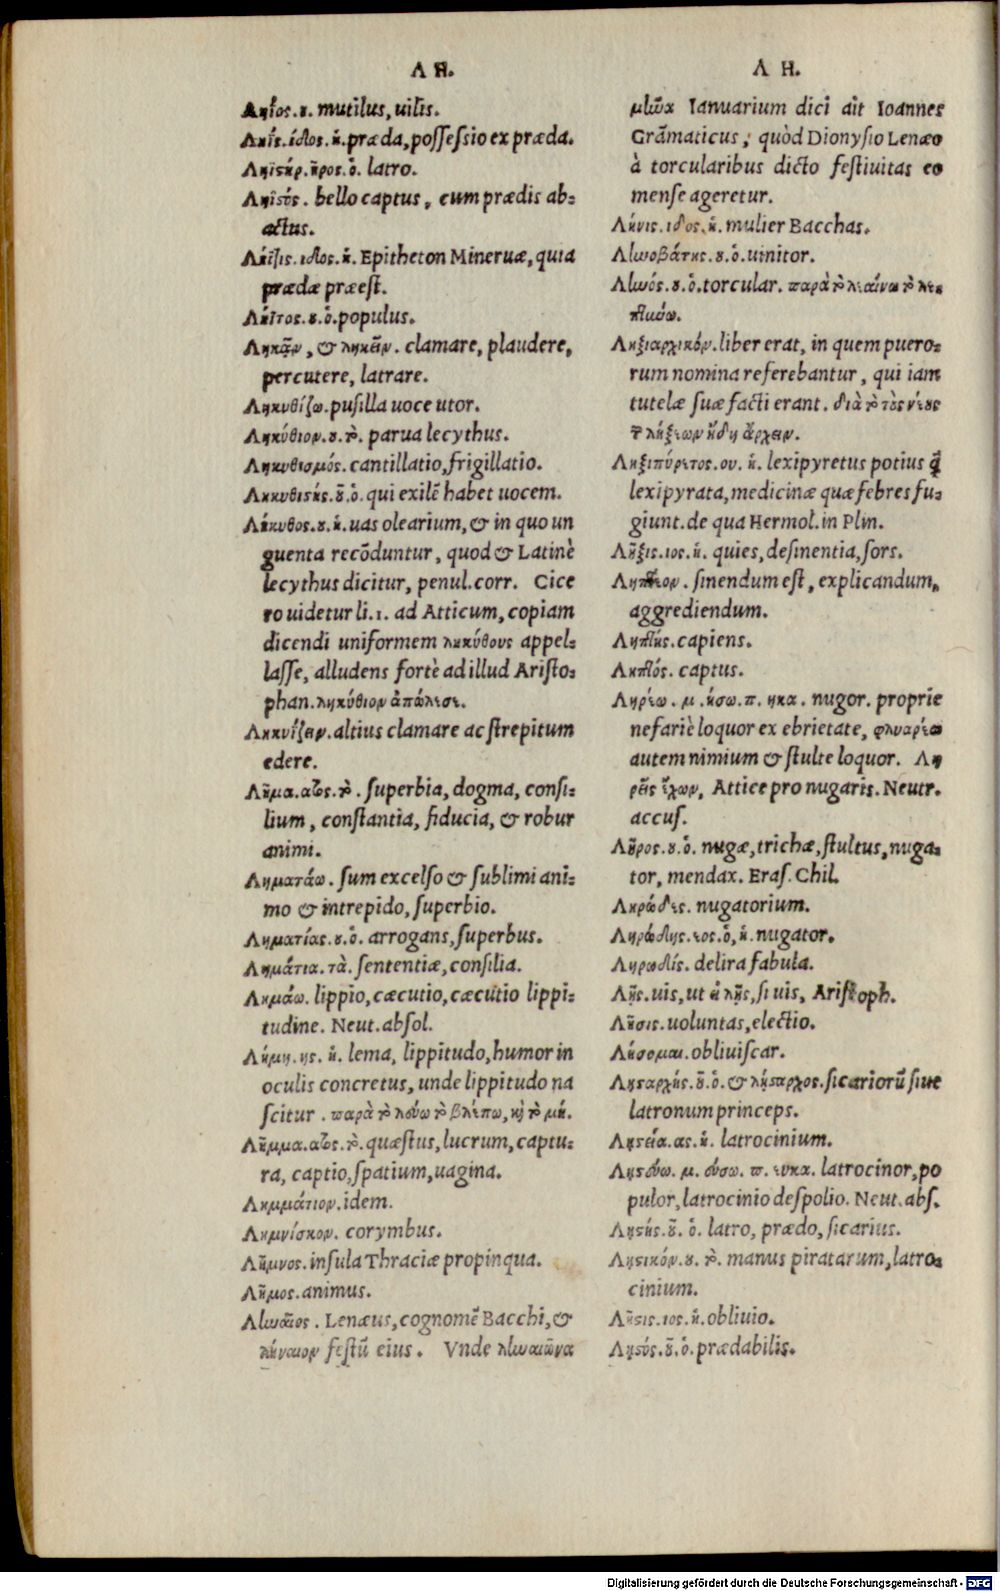 Λ Η.
Ληΐος. ȣ. mutilus, uilis.
Ληῒς. ίδος. ἡ. præda, possessio ex præda.
Ληϊϛήρ. ῆρος. ὁ. latro.
Ληϊϛός. bello captus, cum prædis ab-
actus.
Ληῖτις. ιδος. ἡ. Epitheton Mineruæ, quia
prædæ præest.
Λήϊτος. ȣ. ὁ. populus.
Ληκᾷν, & ληκεῖν. clamare, plaudere,
percutere, latrare.
Ληκυθίζω. pusilla uoce utor.
Ληκύθιον. ȣ. τὸ. parua lecythus.
Ληκυθισμός. cantillatio, frigillatio.
Ληκυθιϛής. ȣ͂. ὁ. qui exilē habet uocem.
Λήκυθος. ȣ. ἡ. uas olearium, & in quo un
guenta recōduntur, quod & Latinè
lecythus dicitur, penul. corr. Cice
ro uidetur li. 1. ad Atticum, copiam
dicendi uniformem ληκύθους appel-
lasse, alludens fortè ad illud Aristo-
phan. ληκύθιον ἀπώλεσε.
Ληκυΐζειν. altius clamare ac strepitum
edere.
Λῆμα. ατος. τὸ. superbia, dogma, consi-
lium, constantia, fiducia, & robur
animi.
Ληματάω. sum excelso & sublimi ani-
mo & intrepido, superbio.
Ληματίας. ȣ. ὁ. arrogans, superbus.
Λημάτια. τὰ. sententiæ, consilia.
Λημάω. lippio, cæcutio, cæcutio lippi-
tudine. Neut. absol.
Λήμη. ης. ἡ. lema, lippitudo, humor in
oculis concretus, unde lippitudo na
scitur. παρὰ τὸ λούω τὸ βλέπω, καὶ τὸ μή.
Λῆμμα. ατος. τὸ. quæstus, lucrum, captu-
ra, captio, spatium, uagina.
Λημμάτιον. idem.
Λημνίσκον. corymbus.
Λῆμνος. insula Thraciæ propinqua.
Λῆμος. animus.
Ληναῖος. Lenæus, cognomē Bacchi, &
λήναιον festū eius. Vnde ληναιῶνα
Λ Η.
μῆνα Ianuarium dici ait Ioannes
Grāmaticus, quòd Dionysio Lenæo
à torcularibus dicto festiuitas eo
mense ageretur.
Λήνις. ιδος. ἡ. mulier Bacchas.
Ληνοβάτης. ȣ. ὁ. uinitor.
Ληνός. ȣ. ὁ. torcular. παρὰ τὸ λεαίνω τὸ λε
πτύνω.
Ληξιαρχικόν. liber erat, in quem puero-
rum nomina referebantur, qui iam
tutelæ suæ facti erant. διὰ τὸ τὸς νέȣς
τ λήξεων ἤδη ἄρχειν.
Ληξιπύρετος. ου. ἡ. lexipyretus potius q̃
lexipyrata, medicinæ quæ febres fu-
giunt. de qua Hermol. in Plin.
Λῆξις. ιος. ἡ. quies, desinentia, sors.
Ληπτέον. sinendum est, explicandum,
aggrediendum.
Ληπτής. capiens.
Ληπτός. captus.
Ληρέω. μ. ήσω. π. ηκα. nugor. proprie
nefariè loquor ex ebrietate, φλυαρέω
autem nimium & stulte loquor. Λη
ρεῖς ἔχων, Attice pro nugaris. Neutr.
accus.
Λῆρος. ȣ. ὁ. nugæ, trichæ, stultus, nuga-
tor, mendax. Eras. Chil.
Ληρῶδες. nugatorium.
Ληρώδης. εος. ὁ, ἡ. nugator.
Ληρωδίς. delira fabula.
Λῇς. uis, ut εἰ λῇς, si uis, Aristoph.
Λῆσις. uoluntas, electio.
Λήσομαι. obliuiscar.
Ληϛαρχής. ȣ͂. ὁ. & λήϛαρχος. sicariorū siue
latronum princeps.
Ληϛεία. ας. ἡ. latrocinium.
Ληϛεύω. μ. εύσω. π. ευκα. latrocinor, po
pulor, latrocinio despolio. Neut. abs.
Ληϛής. ȣ͂. ὁ. latro, prædo, sicarius.
Ληϛικόν. ȣ. τὸ. manus piratarum, latro-
cinium.
Λῆϛις. ιος. ἡ. obliuio.
Ληϛός. ȣ͂. ὁ. prædabilis.
Digitalisierung gefördert durch die Deutsche Forschungsgemeinschaft - DFG